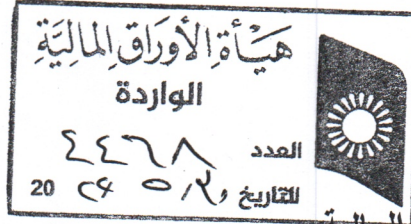 هَيْأَةُ الأَوْرَاقِ المَالِيَّةِ
الواردة
العدد ٤٤٦٨
للتاريخ ٥/ 20 ٢٤